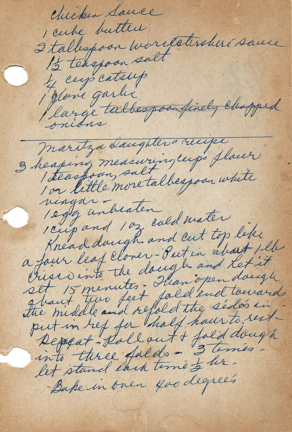 Chicken Sauce
1 cube butter
2 tablespoon worcstersheri sauce
1/2 teaspoon salt
1/4 cup catsup
1 glove garlic
1 large tablespoon finely chopped
onions
Maritza daughters recipe
3 heaping measuring cups flour
1 teaspoon salt
1 or little more tablespoon white
vinegar -
1 egg unbeaten
1 cup and 1 oz cold water
Knead dough and cut top like
a four leaf clover - Put in about 1-lb
Crisco into the dough and let it
set 15 minutes - Than open dough
about two feet fold end towards
the middle and refold the sides in
put in ref for half hour to rest -
Repeat - Roll out + fold dough
into three folds - 3 times -
let stand each time 1/2 hr.
Bake in over 400 degrees